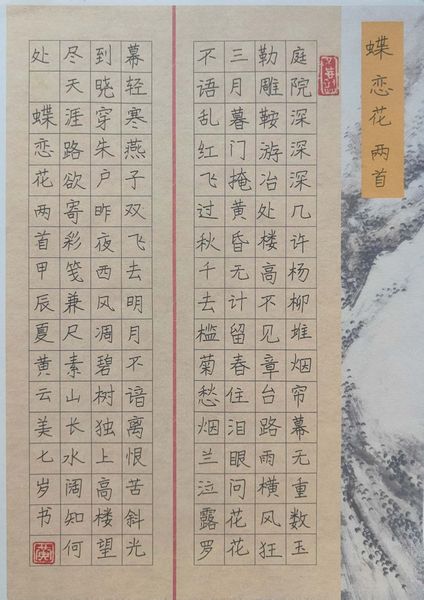 蝶恋花两首
庭院深深深几许杨柳堆烟帘幕无重数玉
勒雕鞍游冶处楼高不见章台路雨横风狂
三月暮门掩黄昏无计留春住泪眼问花花
不语乱红飞过秋千去槛菊愁烟兰泣露罗
幕轻寒燕子双飞去明月不谙离恨苦斜光
到晓穿朱户昨夜西风凋碧树独上高楼望
尽天涯路欲寄彩笺兼尺素山长水阔知何
处 蝶恋花两首甲辰夏黄云美七岁书